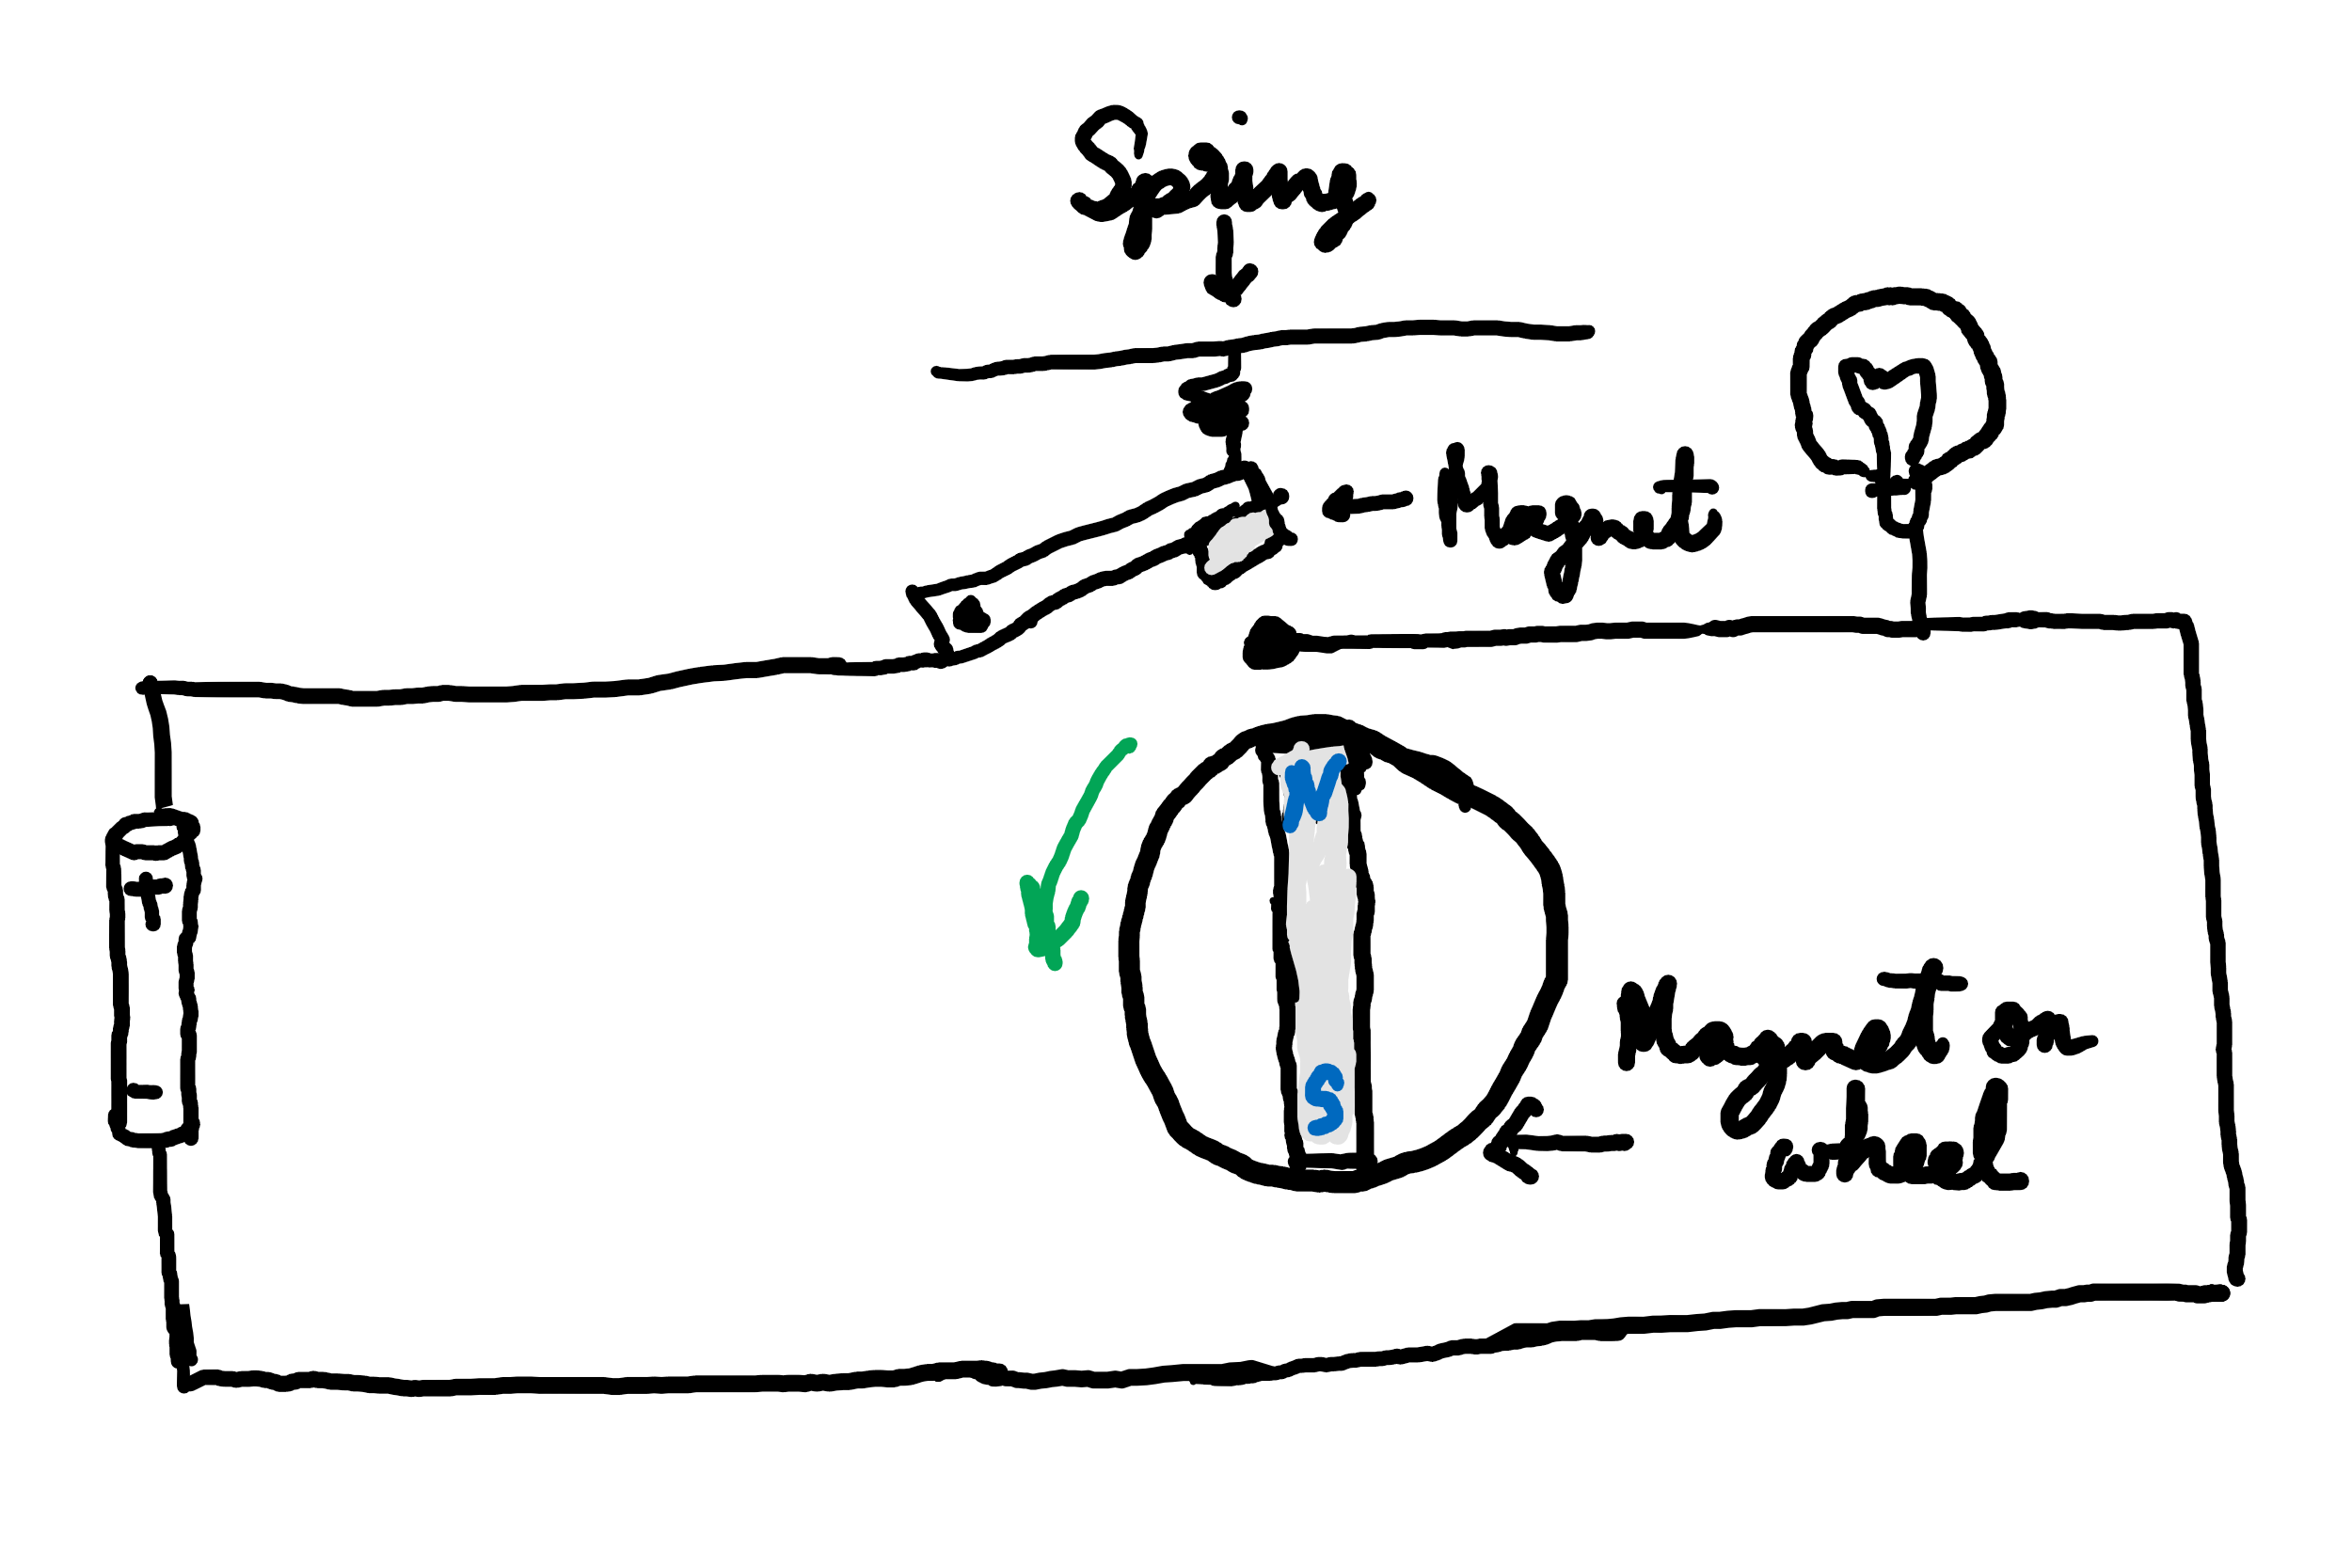 Spring
Magnet
+
N
S
Magnet on
wheel
-